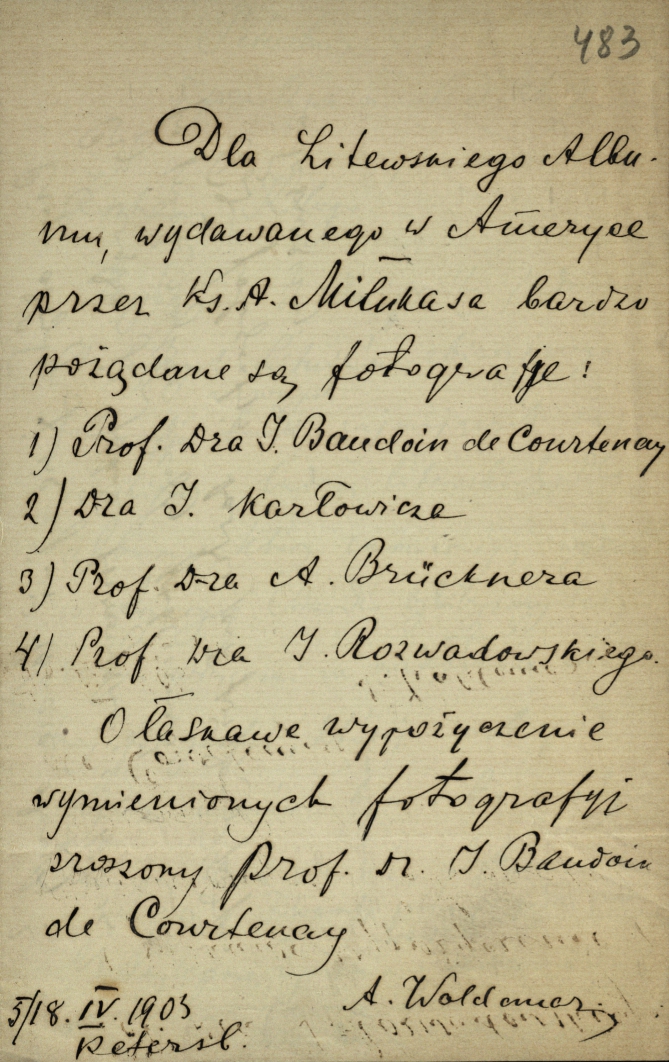 483
Dla Litewskiego Albu-
mu, wydawanego w Ameryce
przez Ks. A. Miłukasa bardzo
pożądane są fotografje:
1) Prof. Dra J. Baudoin de Courtenay
2) Dra J. Karłowicza
3) Prof. Dra A. Brücknera
4) Prof Dra J. Rozwadowskiego.
O łaskawe wypożyczenie
wymienionych fotografyj
proszony Prof. dr. J. Baudoin
de Courtenay
A. Woldemar.
5/18. IV. 1903
Petersb.